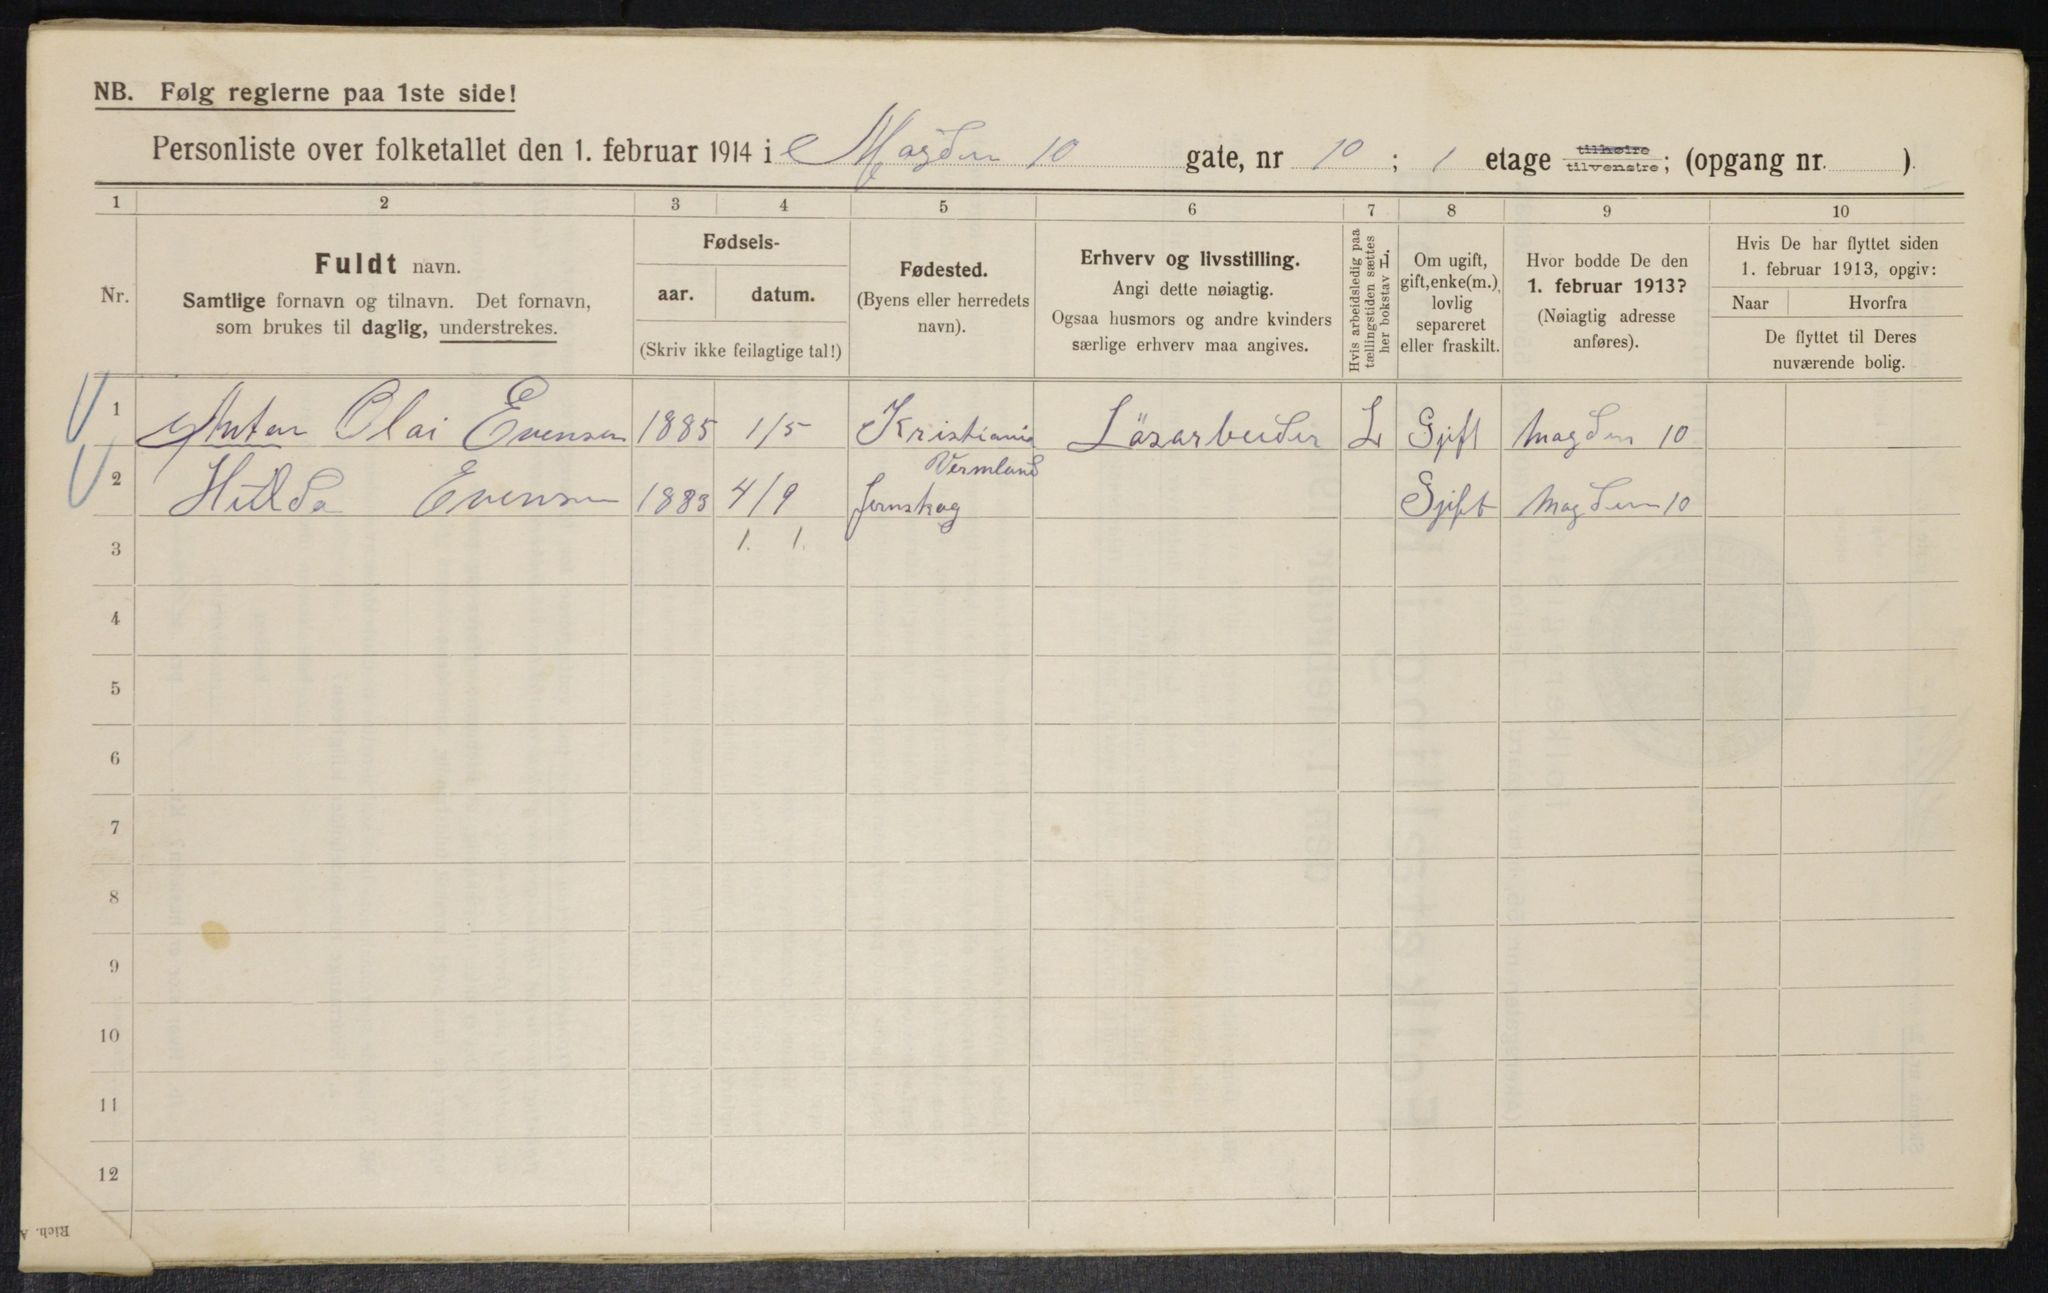 NB. Følg reglerne paa 1ste side!
Personliste over folketallet den 1. februar 1914 i Magdem 10 gate, nr 10 ; 1 etage tilhøire tilvenstre; (opgang nr. ).
1 2 3 4 5 6 7 8 9 10
Nr.
Fuldt navn.
Samtlige fornavn og tilnavn. Det fornavn,
som brukes til daglig, understrekes.
Fødsels-
aar. datum.
(Skriv ikke feilagtige tal!)
Fødested.
(Byens eller herredets
navn).
Erhverv og livsstilling.
Angi dette nøiagtig.
Ogsaa husmors og andre kvinders
særlige erhverv maa angives.
Hvis arbeidsledig paa
tællingstiden sættes
her bokstav L.
Om ugift,
gift, enke(m.),
lovlig
separeret
eller fraskilt.
Hvor bodde De den
1. februar 1913?
(Nøiagtig adresse
anføres).
Hvis De har flyttet siden
1. februar 1913, opgiv:
Naar Hvorfra
De flyttet til Deres
nuværende bolig.
1 Anton Olai Evensen 1885 1/5 Kristiania Lösarbeider L Gjift Magdem 10
Vermland
2 Hilda Evensen 1883 4/9 Jernskog Gjift Magdem 10
3 1. 1.
4
5
6
7
8
9
10
11
12
Rich. A